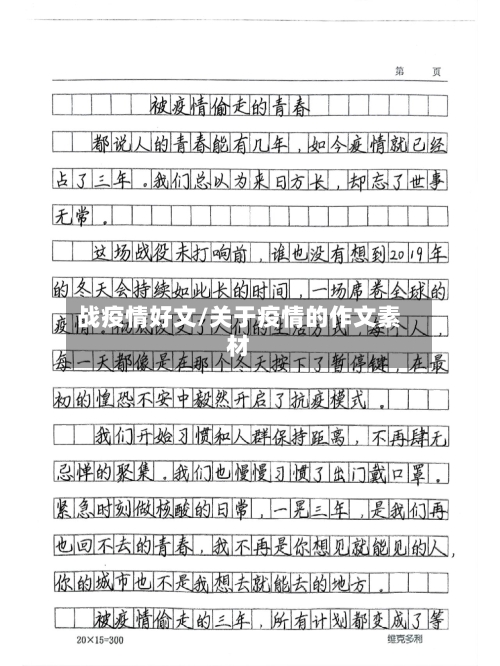 第 页
被疫情偷走的青春
都说人的青春能有几年,如今疫情就已经
占了三年。我们总以为来日方长,却忘了世事
无常。
这场战役未打响前,谁也没有想到2019年
的冬天会持续如此长的时间,一场席卷全球的
疫情
人们的生活方式,每个人,
战疫情好文/关于疫情的作文素
材
每一天都像是在那个冬天按下了暂停键,在最
初的惶恐不安中毅然开启了抗疫模式。
我们开始习惯和人群保持距离,不再肆无
忌惮的聚集。我们也慢慢习惯了出门戴口罩。
紧急时刻做核酸的日常,一晃三年,是我们再
也回不去的青春,我不再是你想见就能见的人,
你的城市也不是我想去就能去的地方。
被疫情偷走的三年,所有计划都变成了等
20×15=300
维克多利